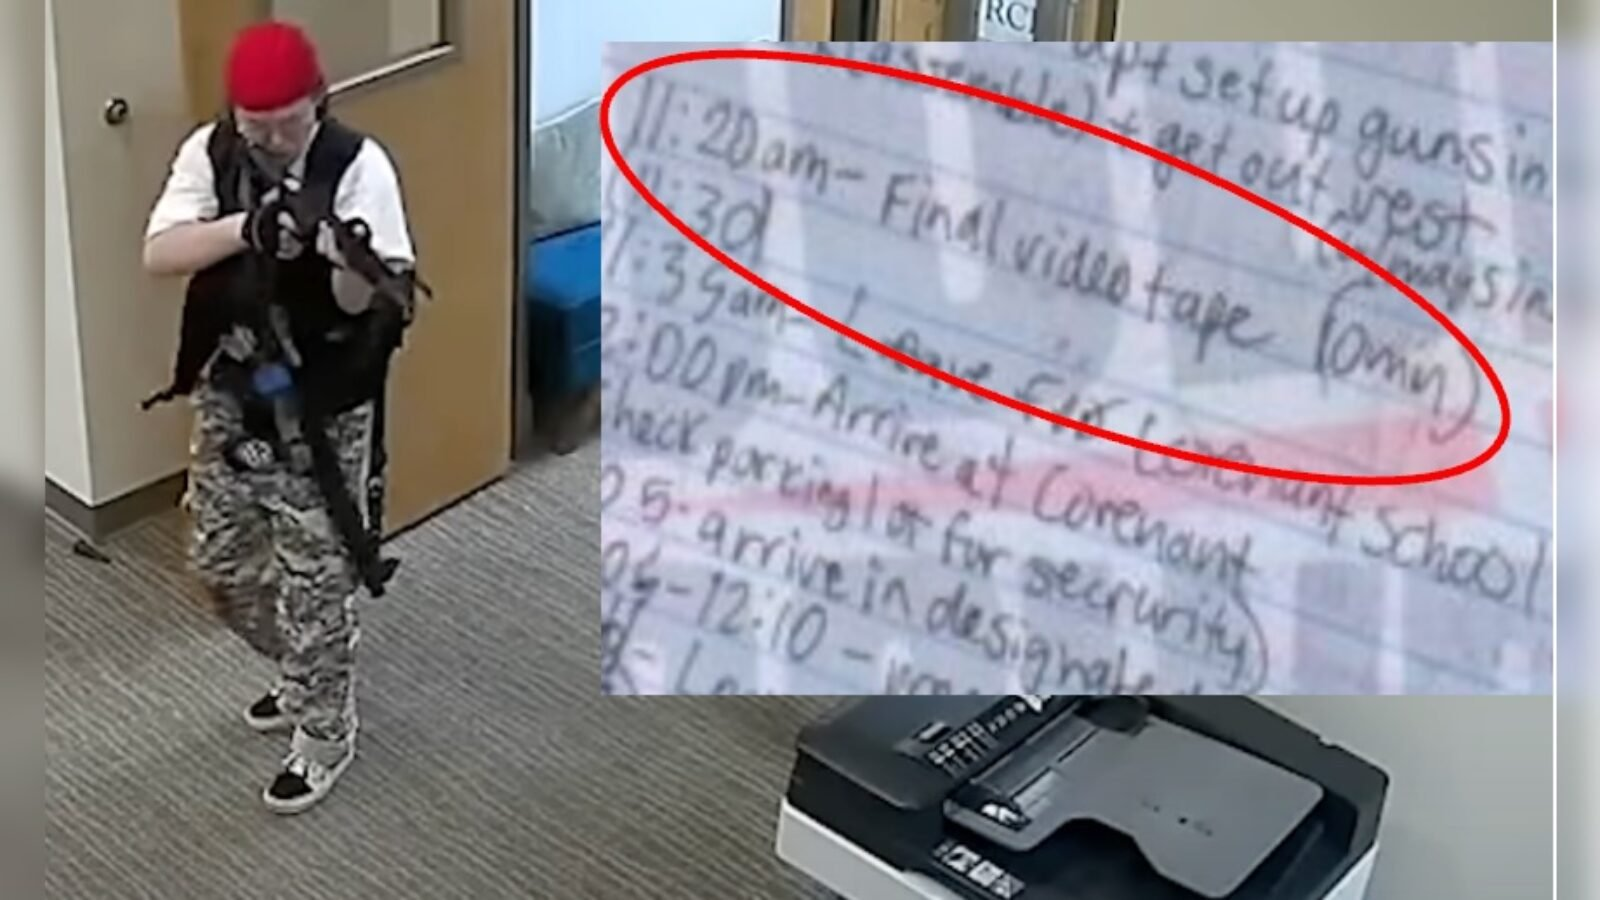 RC
apt set up guns in
(assemble) + get out vest
(w/ mags in
11:20am- Final video tape (10min)
11:30
11:35am- Leave for Covenant School
:00pm- Arrive at Covenant
check parking lot for secrurity)
05- arrive in designate
-12:10 -